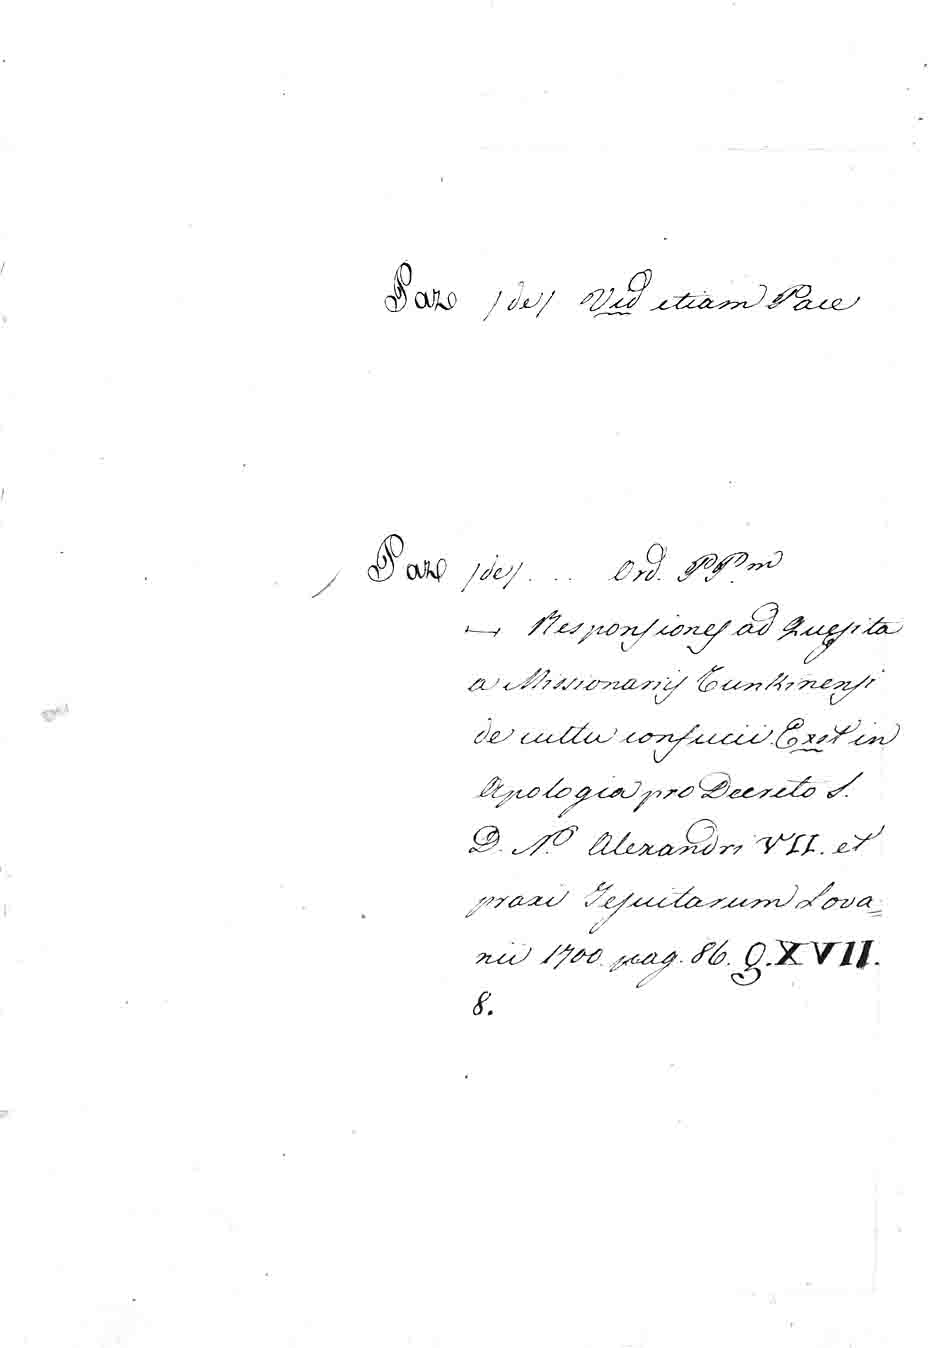 Paz /de/ Vid etiam Pace
Paz /de/ . . . Ord. PP.m
— Responsiones ad Quęsita
a Missionarijs Tunkinensi
de cultu confucii. Exst in
Apologia pro Decreto S.
D. N.o Alexandri VII. et
praxi Jesuitarum Lova=
nii 1700. pag. 86. Q. XVII.
8.